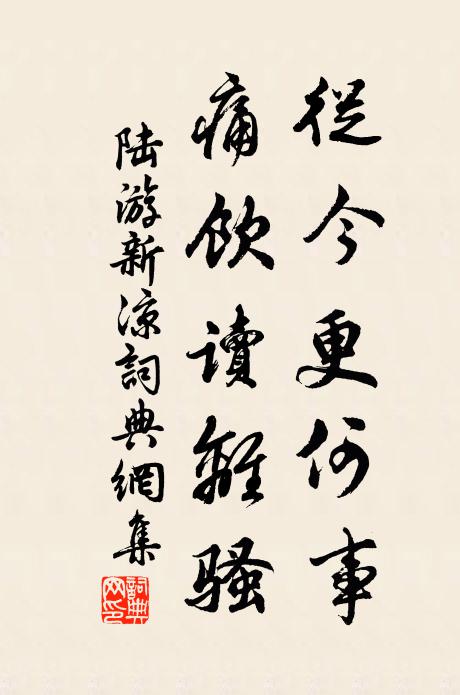 從今更何事
痛飲讀離騷
陆游新涼詞典網集
詞典